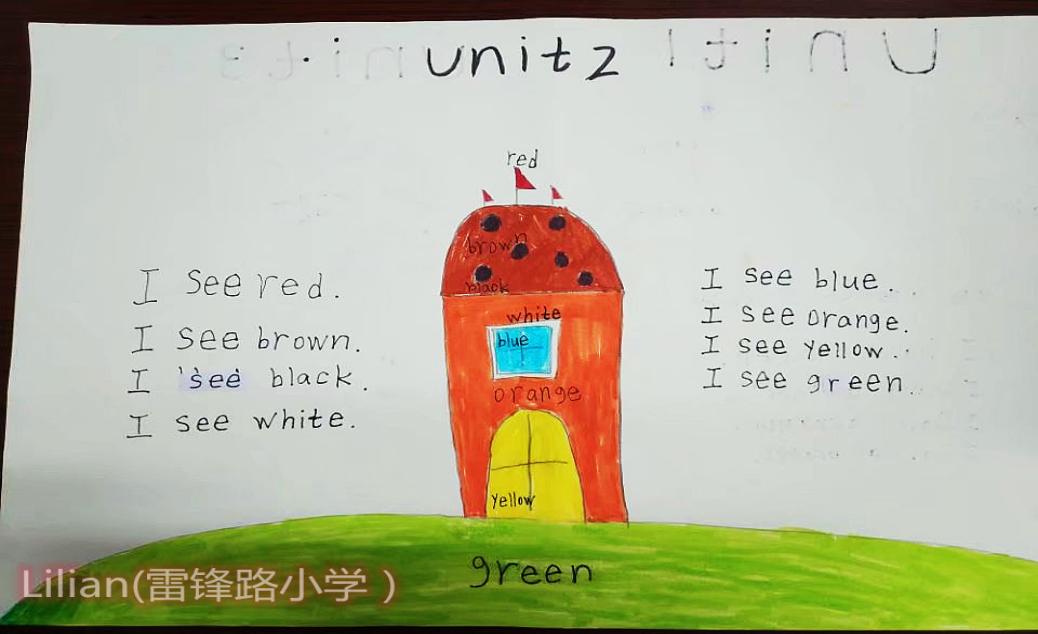 unit2
red
brown
black
white
blue
orange
yellow
green
I see red.
I see brown.
I see black.
I see white.
I see blue.
I see orange.
I see yellow.
I see green.
Lilian(雷锋路小学)